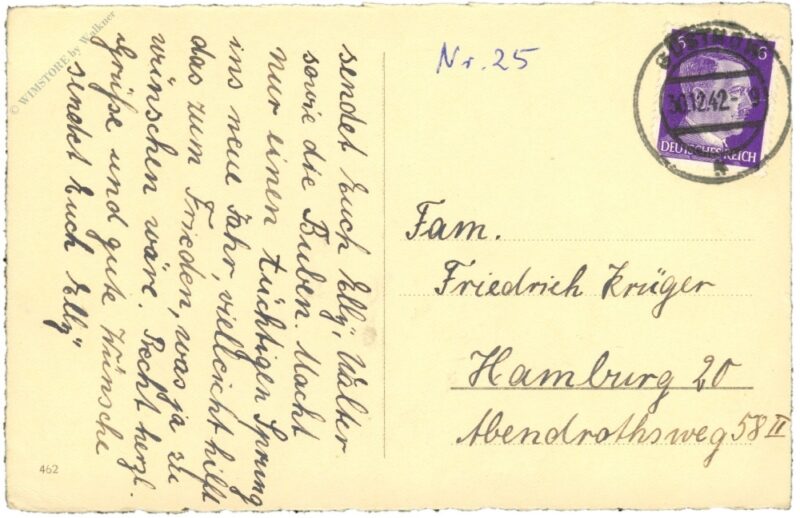 © WIMSTORE by Walkner
sendet Euch Elly, Walter
sowie die Buben. Macht
nur einen tüchtigen Sprung
ins neue Jahr, vielleicht hilft
das zum Frieden, was ja zu
wünschen wäre. Recht herzl.
Grüße und gute Wünsche
sendet Euch Elly
462
Nr. 25
GÜSTROW
30.12.42-9
6 6
DEUTSCHES REICH
Fam.
Friedrich Krüger
Hamburg 20
Abendrothsweg 58 II